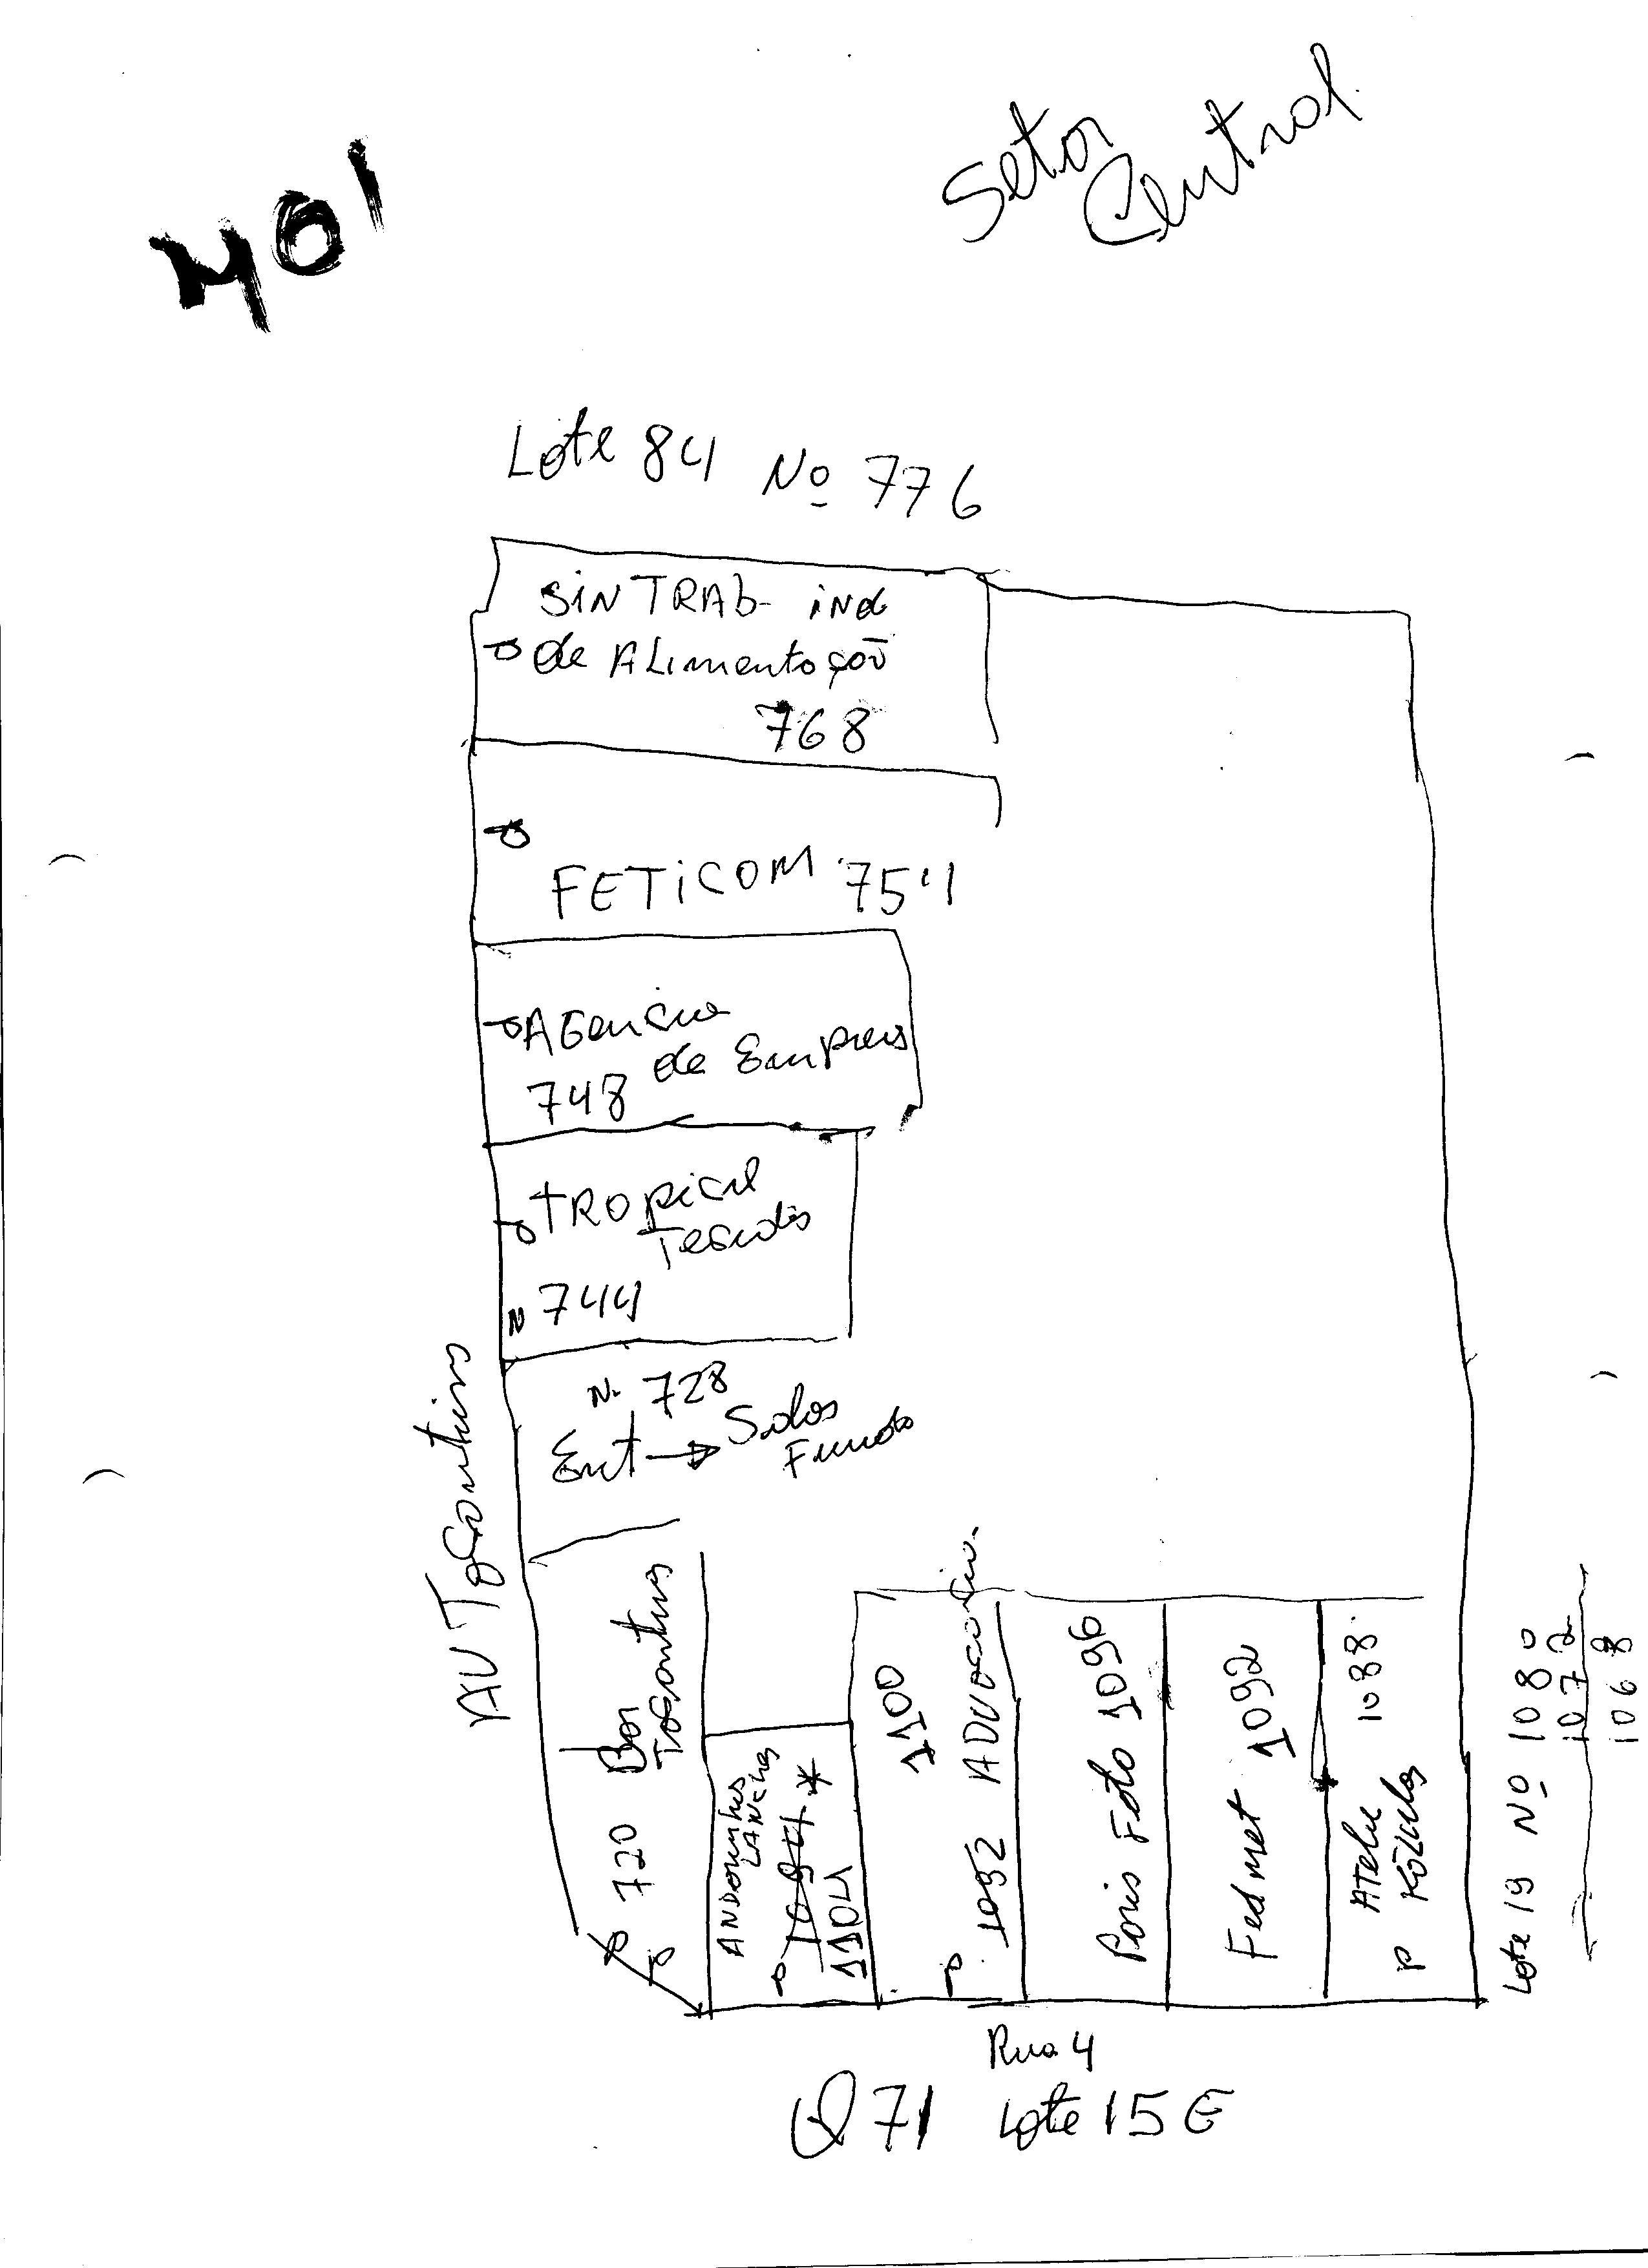 401
Setor
Central
Lote 84 Nº 776
SINTRAb- ind
de ALimentação
768
FETiCOM 751
AGencia
de Empreis
748
TROpical
Tecidos
N 744
N. 728
Ent → Salas
Fundo
AV Tocantins
Bar
Tocantins
720
ANDorinhas
LANches
1094 *
1104
1100
1092 ADVocacia.
Paris Foto 1096
Fedmet 1092
ATelie 1088.
P
Lote 19 Nº 1080
1072
1068
Rua 4
Q 71 Lote 15 E